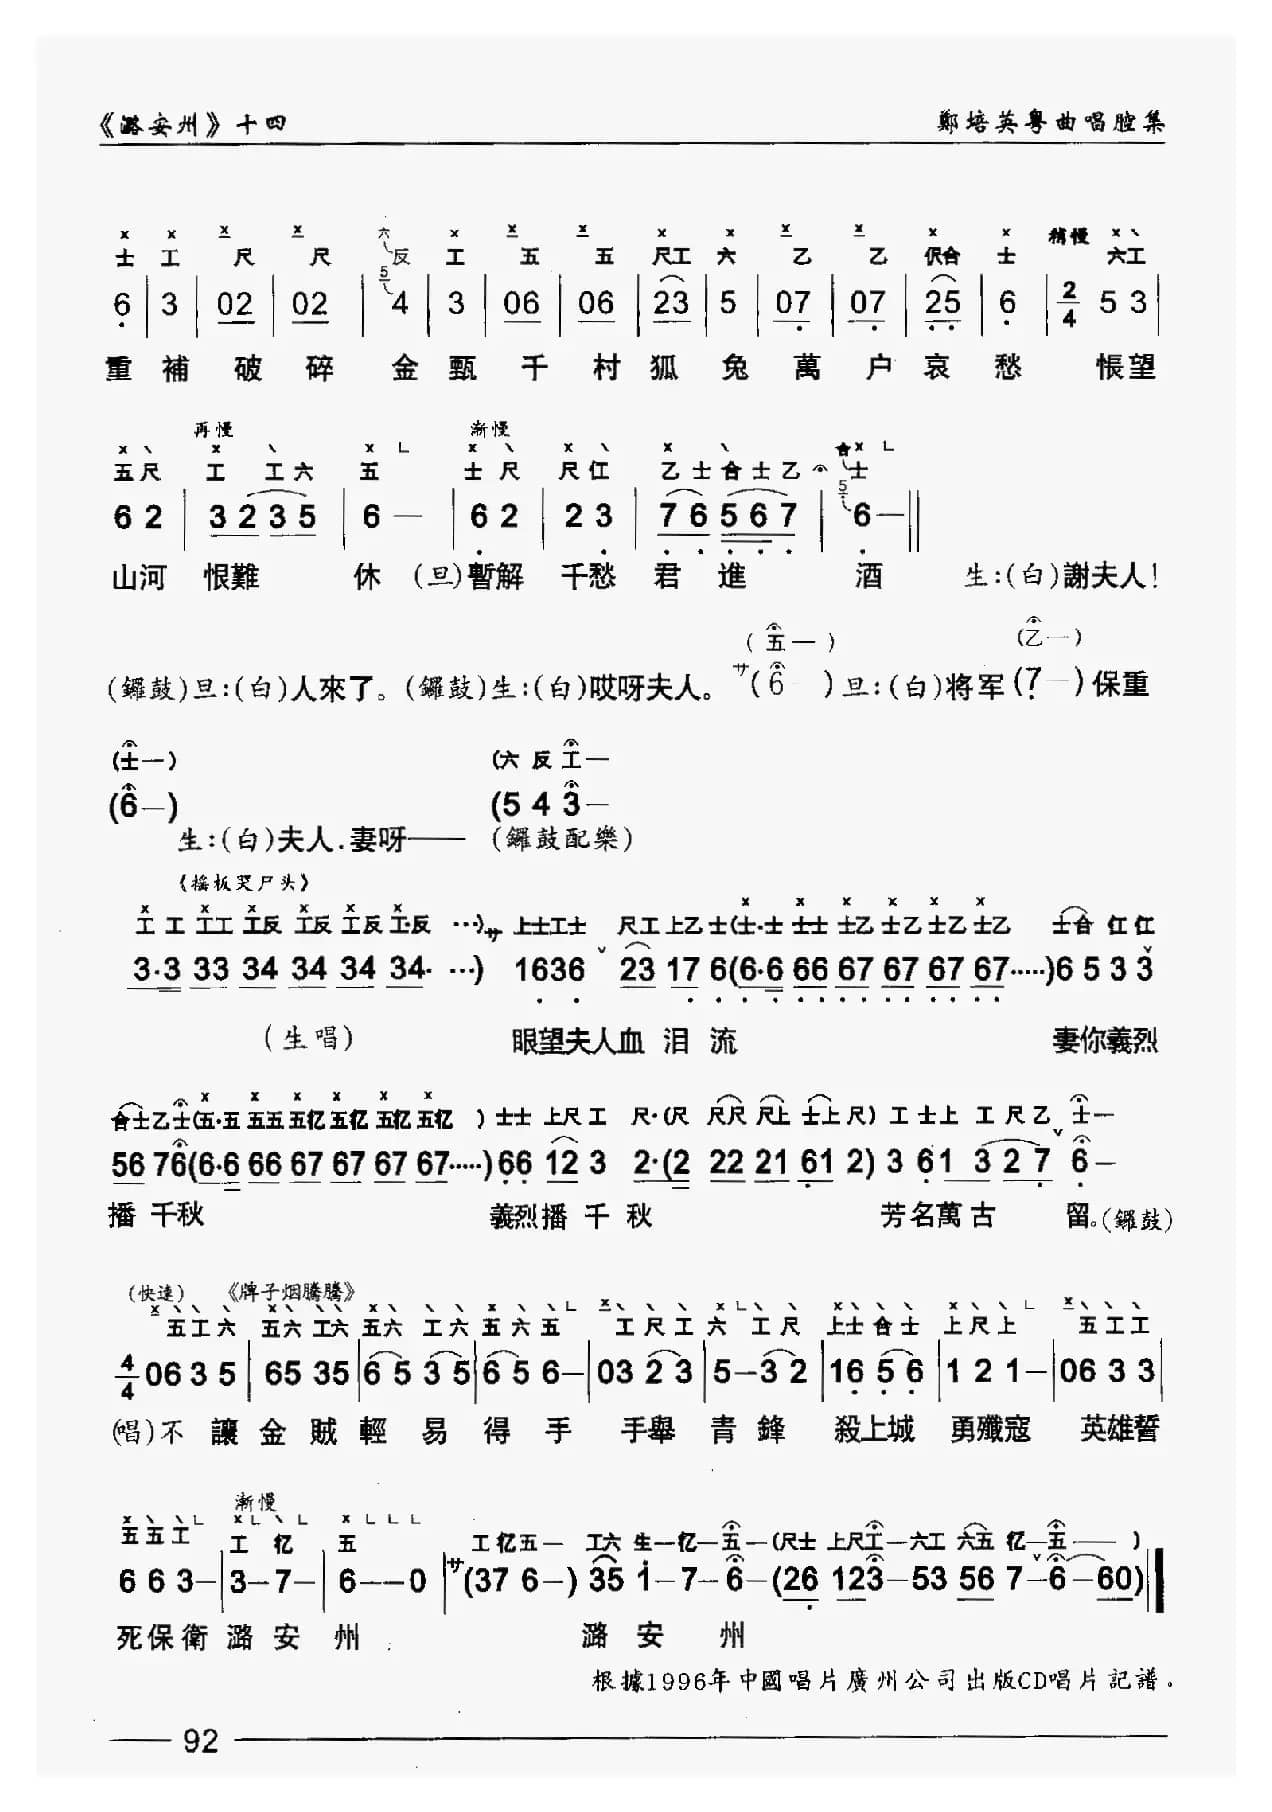 《潞安州》十四 鄭培英粵曲唱腔集
x x x x 六 x x x x x x x x x 稍慢 x 丶
士 工 尺 尺 反 工 五 五 尺工 六 乙 乙 伬合 士 六工
6 | 3 | 02 | 02 | 5 4 | 3 | 06 | 06 | 23 | 5 | 07 | 07 | 25 | 6 | 2/4 5 3 |
重 補 破 碎 金 甌 千 村 狐 兔 萬 户 哀 愁 悵望
再慢 漸慢
x 丶 x 丶 x ㄴ x 丶 x 丶 x 丶 合x ㄴ
五尺 工 工六 五 士尺 尺仜 乙士合士乙 士
6 2 | 3 2 3 5 | 6 — | 6 2 | 2 3 | 7 6 5 6 7 | 5 6 — ||
山河 恨難 休 (旦)暫解 千愁 君 進 酒 生:(白)謝夫人!
(五一) (乙一)
(鑼鼓)旦:(白)人來了。(鑼鼓)生:(白)哎呀夫人。 サ(6 )旦:(白)将军(7— )保重
(士一) (六 反 工一
(6—) (5 4 3—
生:(白)夫人.妻呀—— (鑼鼓配樂)
《摇板哭尸头》
x x x x x x x x x x x x
工 工 工工 工反 工反 工反 工·反 ···)サ 上士工士 尺工 上乙 士(士·士 士士 士乙 士乙 士乙 士乙 士合 仜仜
3·3 33 34 34 34 34· ···) 1636 v 23 17 6(6·6 66 67 67 67 67·····)6 5 3 3
(生唱) 眼望夫人血 泪 流 妻你義烈
x x x x x x
合士乙士(五·五 五五 五亿 五亿 五亿 五亿 )士士 上尺 工 尺·(尺 尺尺 尺上 士上尺) 工 士上 工 尺 乙 士一
56 76(6·6 66 67 67 67 67·····)66 12 3 2·(2 22 21 61 2) 3 61 3 2 7 v 6 —
播 千秋 義烈播 千 秋 芳名萬 古 留。(鑼鼓)
(快速) 《牌子烟騰騰》
x丶丶 丶 x丶 丶丶 x丶 丶丶 x 丶丶ㄴ x丶 丶丶 x ㄴ丶 丶 x丶丶丶 x丶丶ㄴ x丶丶丶
五工六 五六 工六 五六 工六 五六五 工尺工 六 工尺 上士合士 上尺上 五工工
4/4 06 3 5 | 65 35 | 6 5 3 5 | 6 5 6— | 03 2 3 | 5—3 2 | 16 5 6 | 1 2 1— | 06 3 3 |
(唱)不 讓 金 賊 輕 易 得 手 手舉 青 鋒 殺上城 勇殲寇 英雄誓
漸慢
x 丶 丶ㄴ xㄴ丶ㄴ x ㄴㄴㄴ
五五工 工 亿 五 工亿五一 工六 生一亿一五一(尺士 上尺工一六工 六五 亿一五—— )
6 6 3— | 3—7— | 6——0 | サ(37 6—) 35 1—7—6—(26 123—53 56 7—6—60)
死保衛 潞 安 州 . 潞 安 州
根據1996年中國唱片廣州公司出版CD唱片記譜。
92